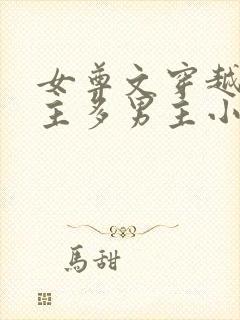 女尊文穿越
主多男主小
馬甜